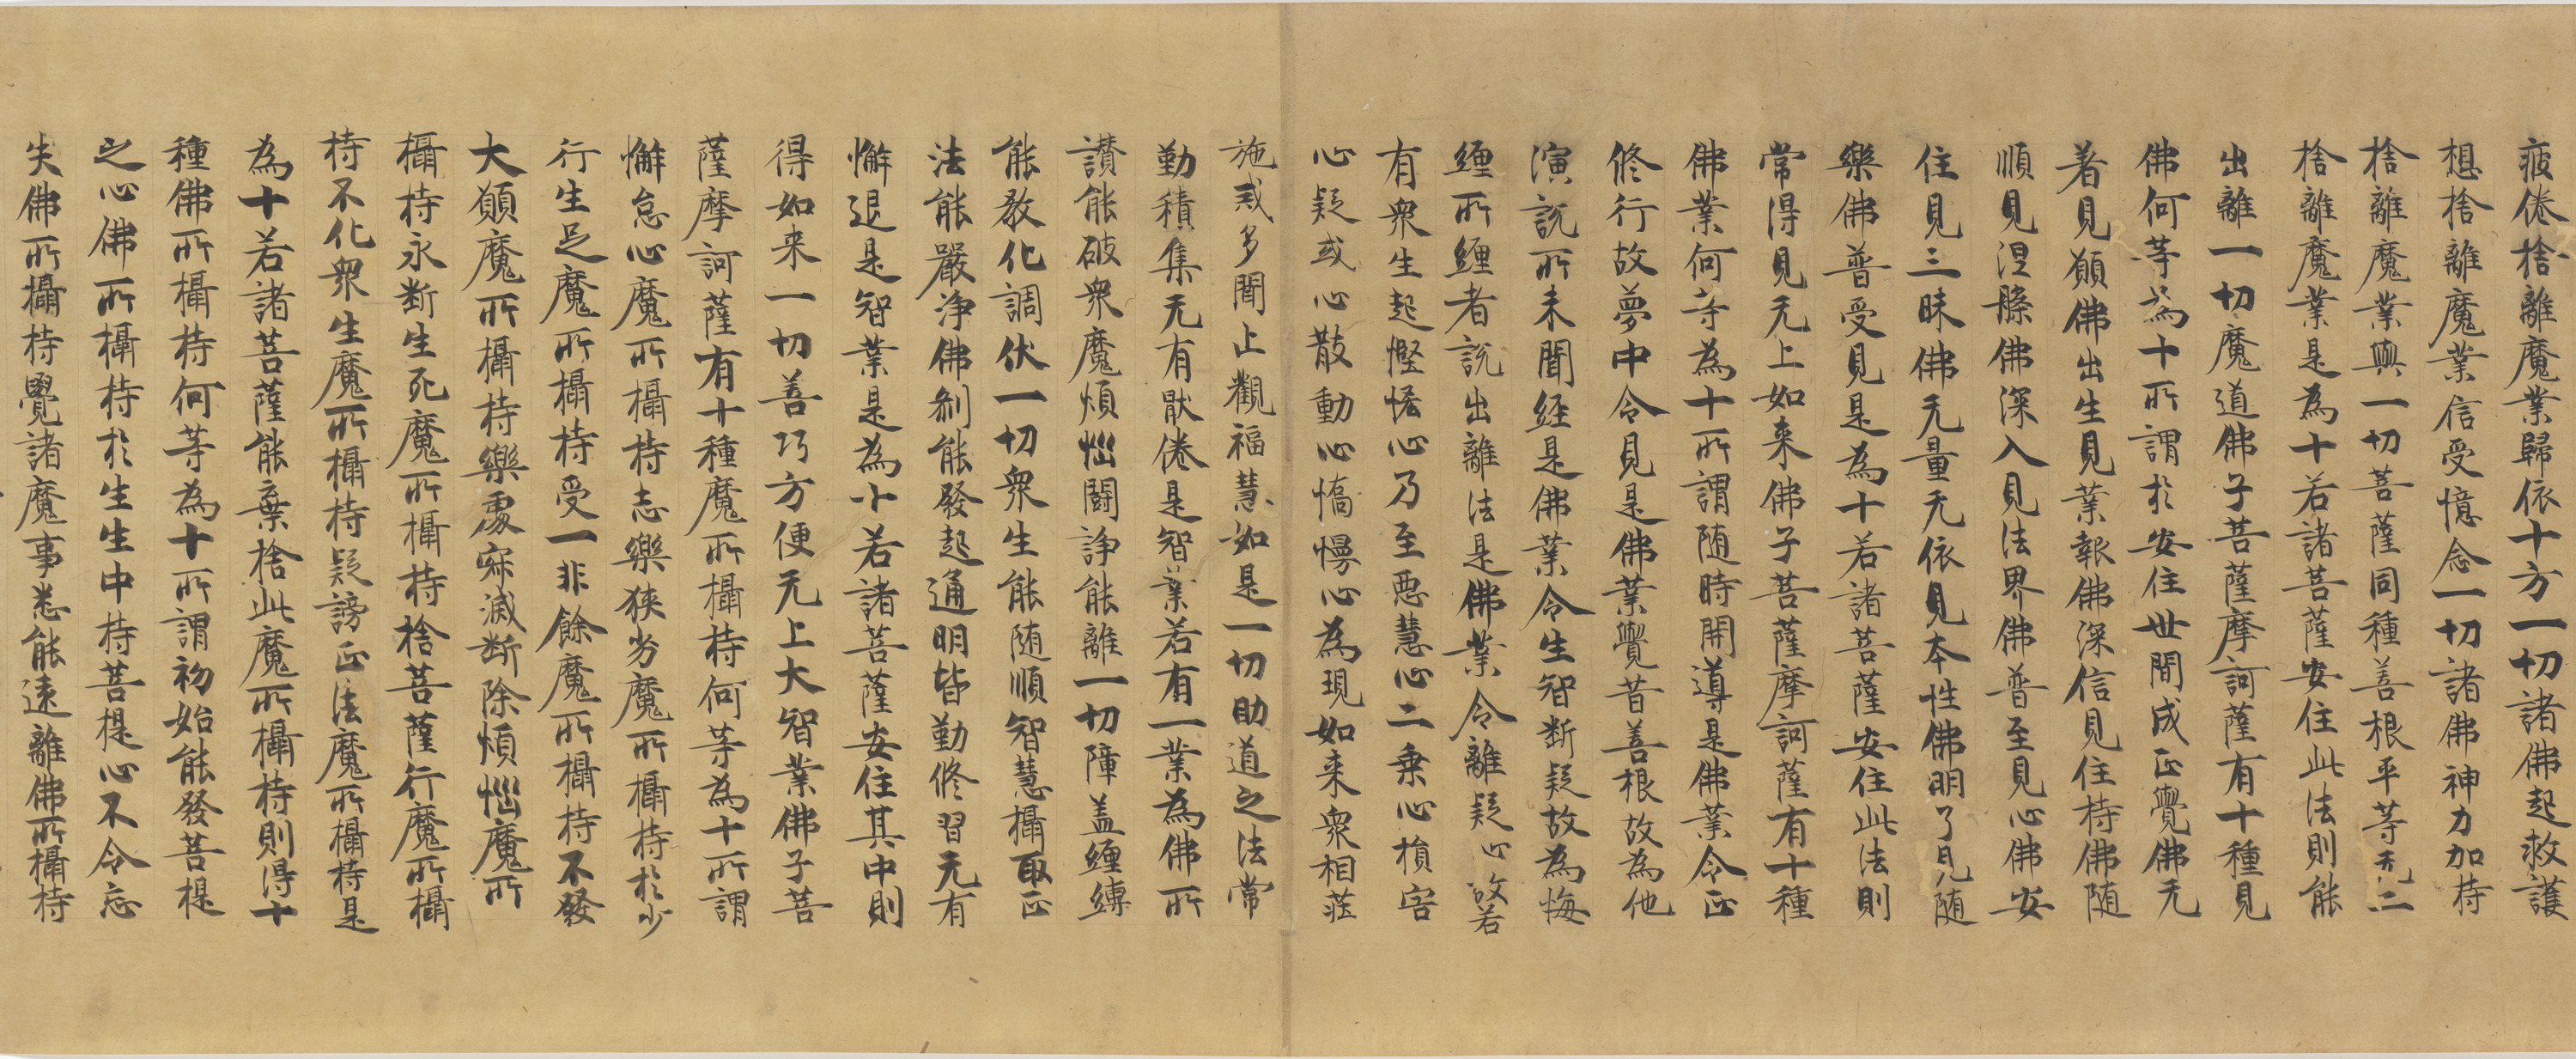 疲倦捨離魔業歸依十方一切諸佛起救護
想捨離魔業信受憶念一切諸佛神力加持
捨離魔業與一切菩薩同種善根平等无二
捨離魔業是為十若諸菩薩安住此法則能
出離一切魔道佛子菩薩摩訶薩有十種見
佛何等為十所謂於安住世間成正覺佛无
著見願佛出生見業報佛深信見住持佛随
順見涅槃佛深入見法界佛普至見心佛安
住見三昧佛无量无依見本性佛明了見随
樂佛普受見是為十若諸菩薩安住此法則
常得見无上如来佛子菩薩摩訶薩有十種
佛業何等為十所謂随時開導是佛業令正
修行故夢中令見是佛業覺昔善根故為他
演說所未聞經是佛業令生智断疑故為悔
纏所纏者說出離法是佛業令離疑心故若
有衆生起慳悋心乃至惡慧心二乗心損害
心疑或心散動心憍慢心為現如来衆相莊
施戒多聞止觀福慧如是一切助道之法常
勤積集无有猒倦是智業若有一業為佛所
讃能破衆魔煩惱闘諍能離一切障盖纏縛
能教化調伏一切衆生能随順智慧攝取正
法能嚴浄佛刹能發起通明皆勤修習无有
懈退是智業是為十若諸菩薩安住其中則
得如来一切善巧方便无上大智業佛子菩
薩摩訶薩有十種魔所攝持何等為十所謂
懈怠心魔所攝持志樂狭劣魔所攝持於少
行生足魔所攝持受一非餘魔所攝持不發
大願魔所攝持樂處寂滅断除煩惱魔所
攝持永断生死魔所攝持捨菩薩行魔所攝
持不化衆生魔所攝持疑謗正法魔所攝持是
為十若諸菩薩能棄捨此魔所攝持則得十
種佛所攝持何等為十所謂初始能發菩提
之心佛所攝持於生生中持菩提心不令忘
失佛所攝持覺諸魔事悉能遠離佛所攝持